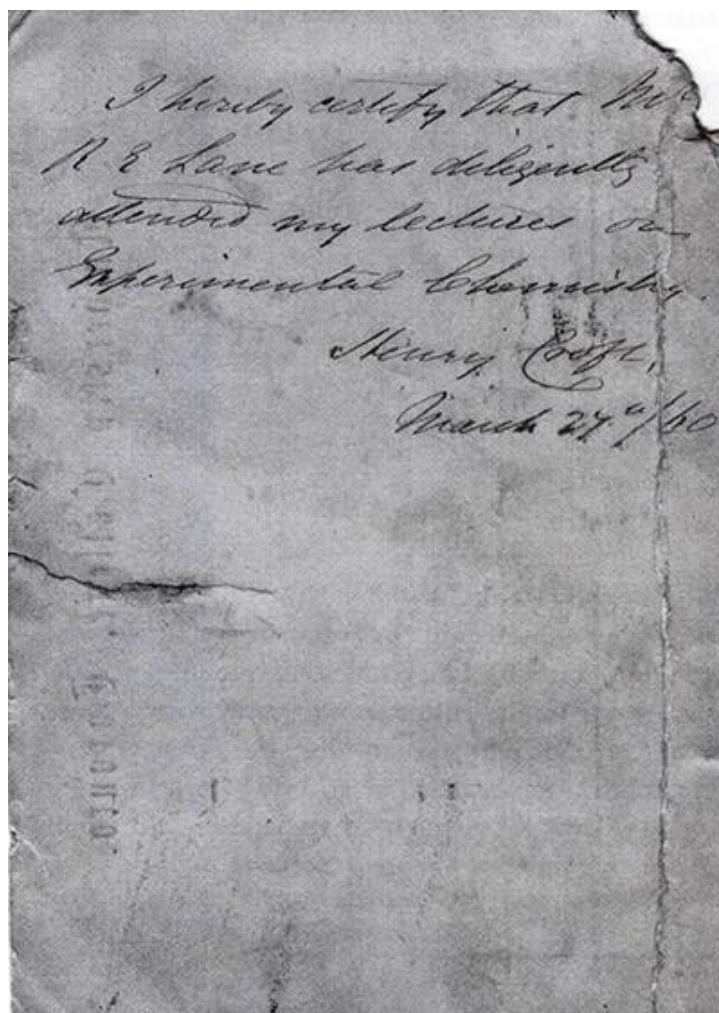 I hereby certify that Mr
R E Lane has diligently
attended my lectures on
Experimental Chemistry.
Henry Croft.
March 27th/60
Toronto.